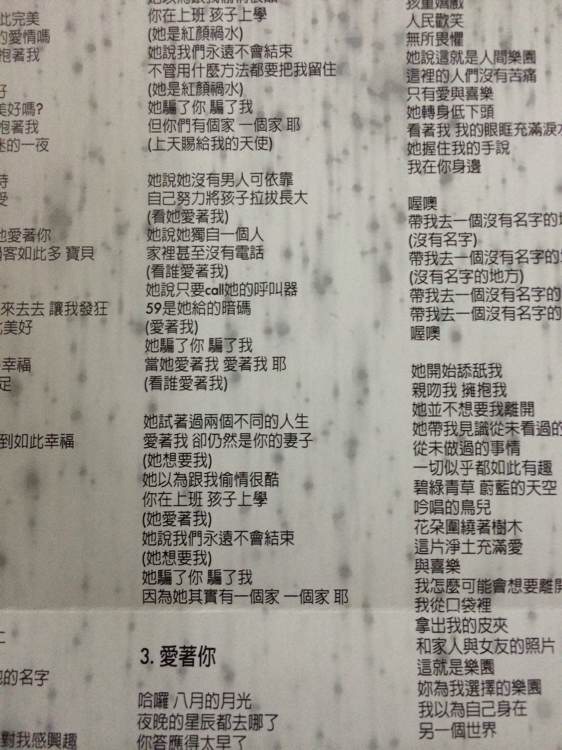 此完美
的愛情嗎
抱著我
好
美好嗎?
抱著我
的一夜
受
愛著你
客如此多 寶貝
來去去 讓我發狂
美好
幸福
足
到如此幸福
的名字
對我感興趣
你在上班 孩子上學
(她是紅顏禍水)
她說我們永遠不會結束
不管用什麼方法都要把我留住
(她是紅顏禍水)
她騙了你 騙了我
但你們有個家 一個家 耶
(上天賜給我的天使)
她說她沒有男人可依靠
自己努力將孩子拉拔長大
(看她愛著我)
她說她獨自一個人
家裡甚至沒有電話
(看誰愛著我)
她說只要call她的呼叫器
59是她給的暗碼
(愛著我)
她騙了你 騙了我
當她愛著我 愛著我 耶
(看誰愛著我)
她試著過兩個不同的人生
愛著我 卻仍然是你的妻子
(她想要我)
她以為跟我偷情很酷
你在上班 孩子上學
(她愛著我)
她說我們永遠不會結束
(她想要我)
她騙了你 騙了我
因為她其實有一個家 一個家 耶
3. 愛著你
哈囉 八月的月光
夜晚的星辰都去哪了
你答應得太早了
孩童嬉戲
人民歡笑
無所畏懼
她說這就是人間樂園
這裡的人們沒有苦痛
只有愛與喜樂
她轉身低下頭
看著我 我的眼眶充滿淚
她握住我的手說
我在你身邊
喔噢
帶我去一個沒有名字的
(沒有名字)
帶我去一個沒有名字的
(沒有名字的地方)
帶我去一個沒有名字的
帶我去一個沒有名字的
喔噢
她開始舔舐我
親吻我 擁抱我
她並不想要我離開
她帶我見識從未看過的
從未做過的事情
一切似乎都如此有趣
碧綠青草 蔚藍的天空
吟唱的鳥兒
花朵圍繞著樹木
這片淨土充滿愛
與喜樂
我怎麼可能會想要離開
我從口袋裡
拿出我的皮夾
和家人與女友的照片
這就是樂園
妳為我選擇的樂園
我以為自己身在
另一個世界